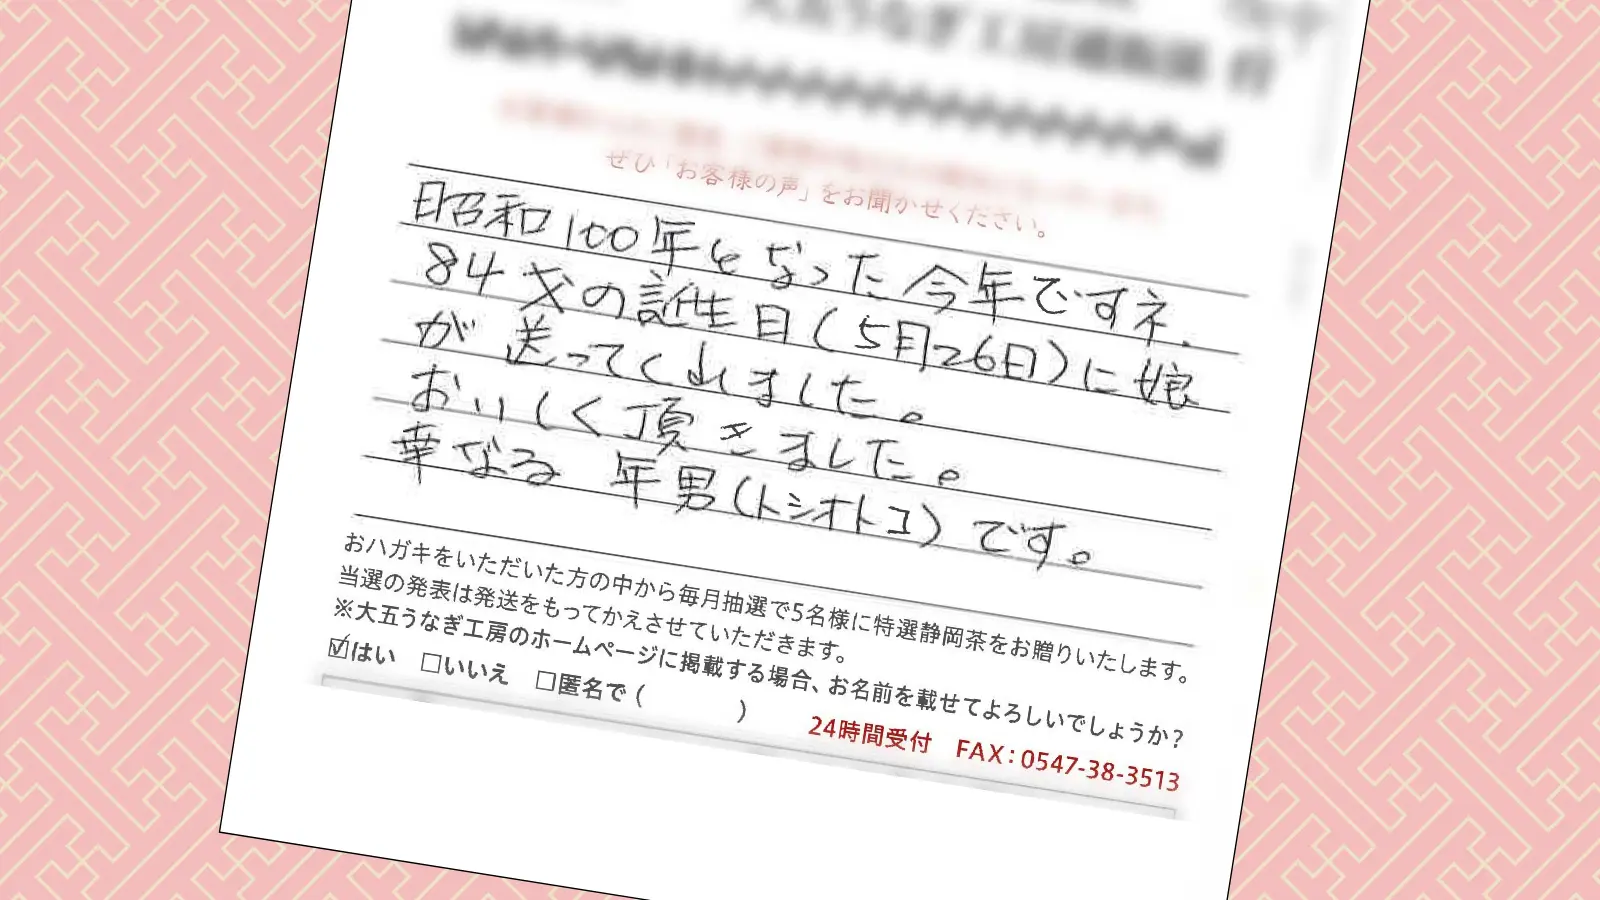 大五うなぎ工房通販部 行
ぜひ「お客様の声」をお聞かせください。
昭和100年となった今年ですネ.
84才の誕生日(5月26日)に娘
が送ってくれました。
おいしく頂きました。
幸なる 年男(トシオトコ)です。
おハガキをいただいた方の中から毎月抽選で5名様に特選静岡茶をお贈りいたします。
当選の発表は発送をもってかえさせていただきます。
※大五うなぎ工房のホームページに掲載する場合、お名前を載せてよろしいでしょうか?
☑はい □いいえ □匿名で( )
24時間受付 FAX:0547-38-3513